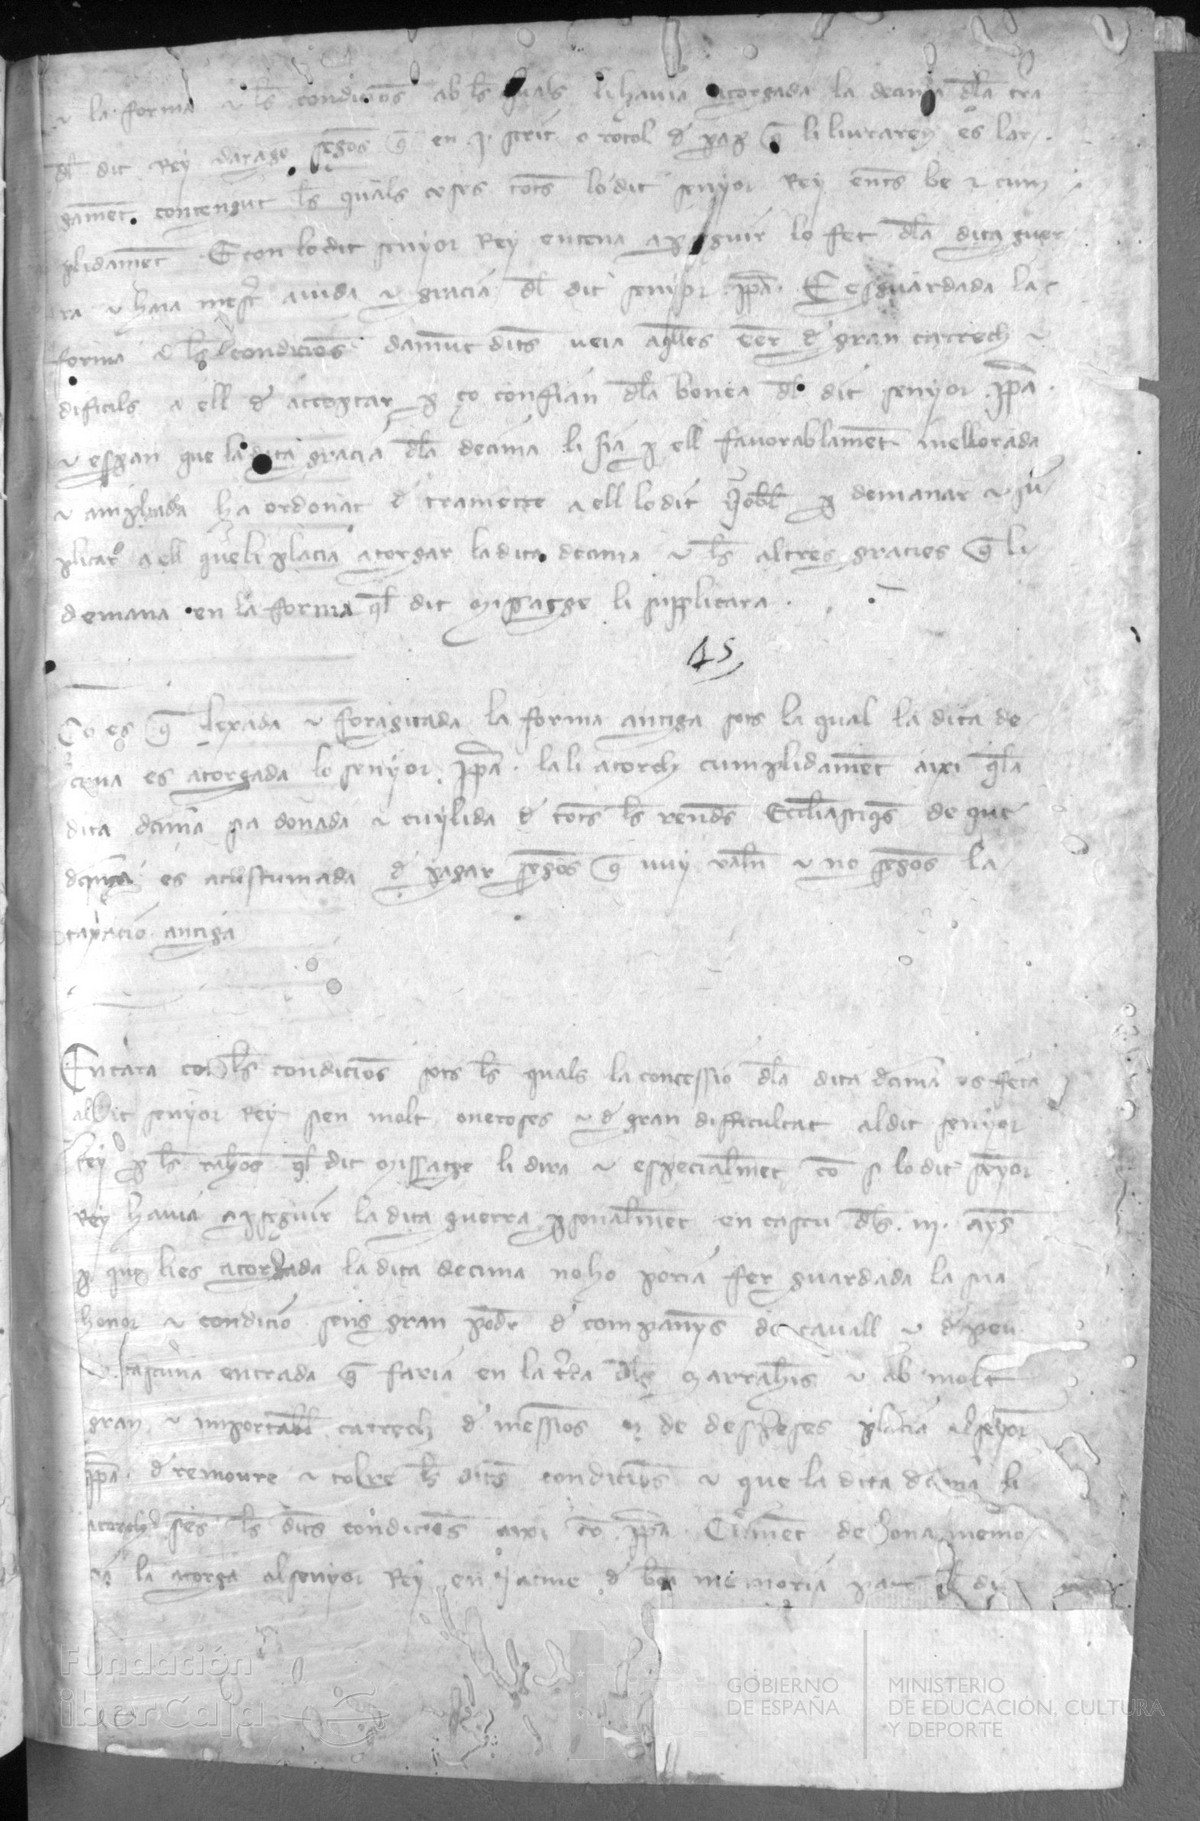 ⁊ la forma ⁊ ls condicios ab ls quals li havia atorgada la decima dla tra
dl dit Rey darago segos q en .j. scrit o rotol d pap q li liuraren es lar
gament contengut ls quals coses tots lo dit senyor Rey entes be ⁊ cum
plidament. E con lo dit senyor Rey entena a pseguir lo fet dla dita guer
ra ⁊ haia mest aiuda ⁊ gracia dl dit senyor .ppa. E esguardada la
forma ⁊ ls condicios damut dits veia aqlles eer d gran carrech ⁊
dificils a ell d acceptar p ço confian dla bonea dl dit senyor .ppa.
⁊ espan que la dita gracia dla decima li sia p ell fauorablament mellorada
⁊ ampliada ha ordonat d trametre a ell lo dit p demanar ⁊ su
plicar a ell que li placia atorgar la dita decima ⁊ ls altres gracies q li
demana en la forma ql dit missatge li supplicara.
45
Ço es q lexada ⁊ foragitada la forma antiga sots la qual la dita de
cema es atorgada lo senyor .ppa. la li atorch cumplidament axi qla
dita decima sia donada ⁊ cuylida d tots ls rends Ecclesiastiqs de que
decima es acustumada d pagar segos q vuy valen ⁊ no segos la
taxacio antiga
Encara con ls condicios sots ls quals la concessio dla dita decima es feta
al dit senyor Rey sien molt oneroses ⁊ d gran difficultat al dit senyor
Rey p ls rahos ql dit missatge li dira ⁊ especialment co si lo dit senyor
Rey hauia a pseguir la dita guerra psonalment en cascu dls .iij. anys
p que li es atorgada la dita decima no ho poria fer guardada la sua
honor ⁊ condicio sens gran poder d companyes de cauall ⁊ d peu
⁊ cascuna entrada q faria en la tra dls Sarrahins ⁊ ab molt
gran ⁊ importabl carrech d messios ⁊ de despeses placia al senyor
ppa. d remoure ⁊ tolre ls dits condicios ⁊ que la dita decima li
atorch sens ls dits condicios axi co .ppa. Clement de bona memo
ria la atorga al senyor Rey en Jacme d bona memoria pare dl dit
Fundación
iberCaja
GOBIERNO
DE ESPAÑA
MINISTERIO
DE EDUCACIÓN, CULTURA
Y DEPORTE